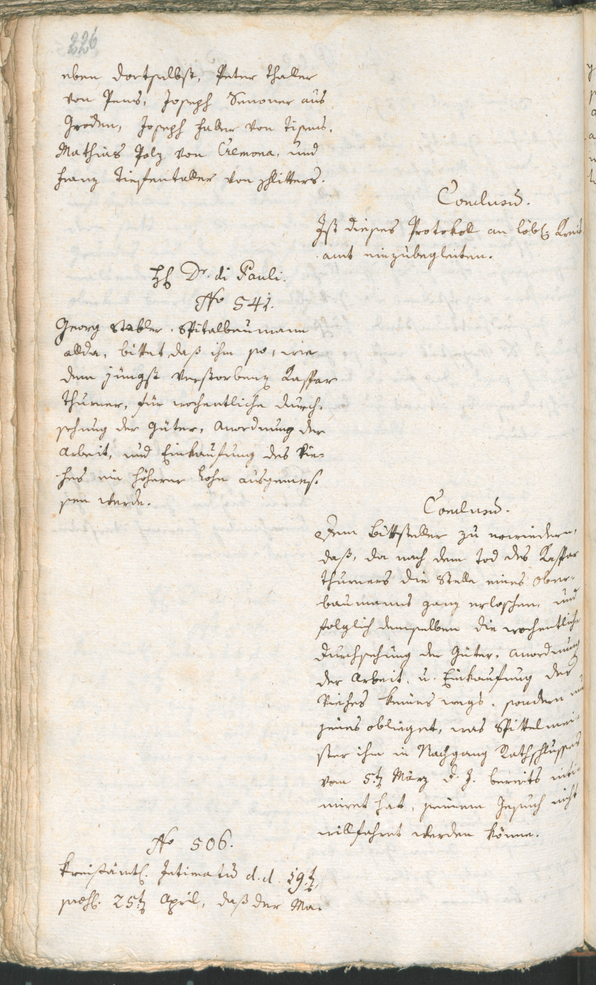 226
eben dortselbst, Peter Thaler
von Pens, Joseph Sanoner aus
Gröden, Joseph Haller von Tisens,
Mathias Polz von Cremona, und
Franz Tiefentaller von
Conclusum.
Ist dieses Protokol an löbl. Kreis
amt einzubegleiten.
H. Dr. di Pauli.
No 541.
Georg Stabler, Spitalbaumann
allda, bittet, daß ihm so, wie
dem jüngst verstorbenen Kaspar
Thurner, für wochentliche Durch-
sehung der Güter, Anordnung der
Arbeit, und Einkaufung des Vie-
hes ein höherer Lohn ausgemes-
sen werde.
Conclusum.
Dem Bittsteller zu erwiedern,
daß, da nach dem Tod des Kaspar
Thurners die Stelle eines Ober-
baumanns ganz erloschen, und
folglich demselben die wochentliche
Durchsehung der Güter, Anordnung
der Arbeit, u. Einkaufung des
Viehes keines wegs, sondern nur
jenes oblieget, was Spittelmei-
ster ihm in Nachgang Rathschlusses
vom 5ten März d. J. bereits inti-
miret hat, seinem Gesuch nicht
willfahret werden könne.
No 506.
Kreisämtl. Intimatum d. d. 19ten
praes. 25ten April, daß der Ma-